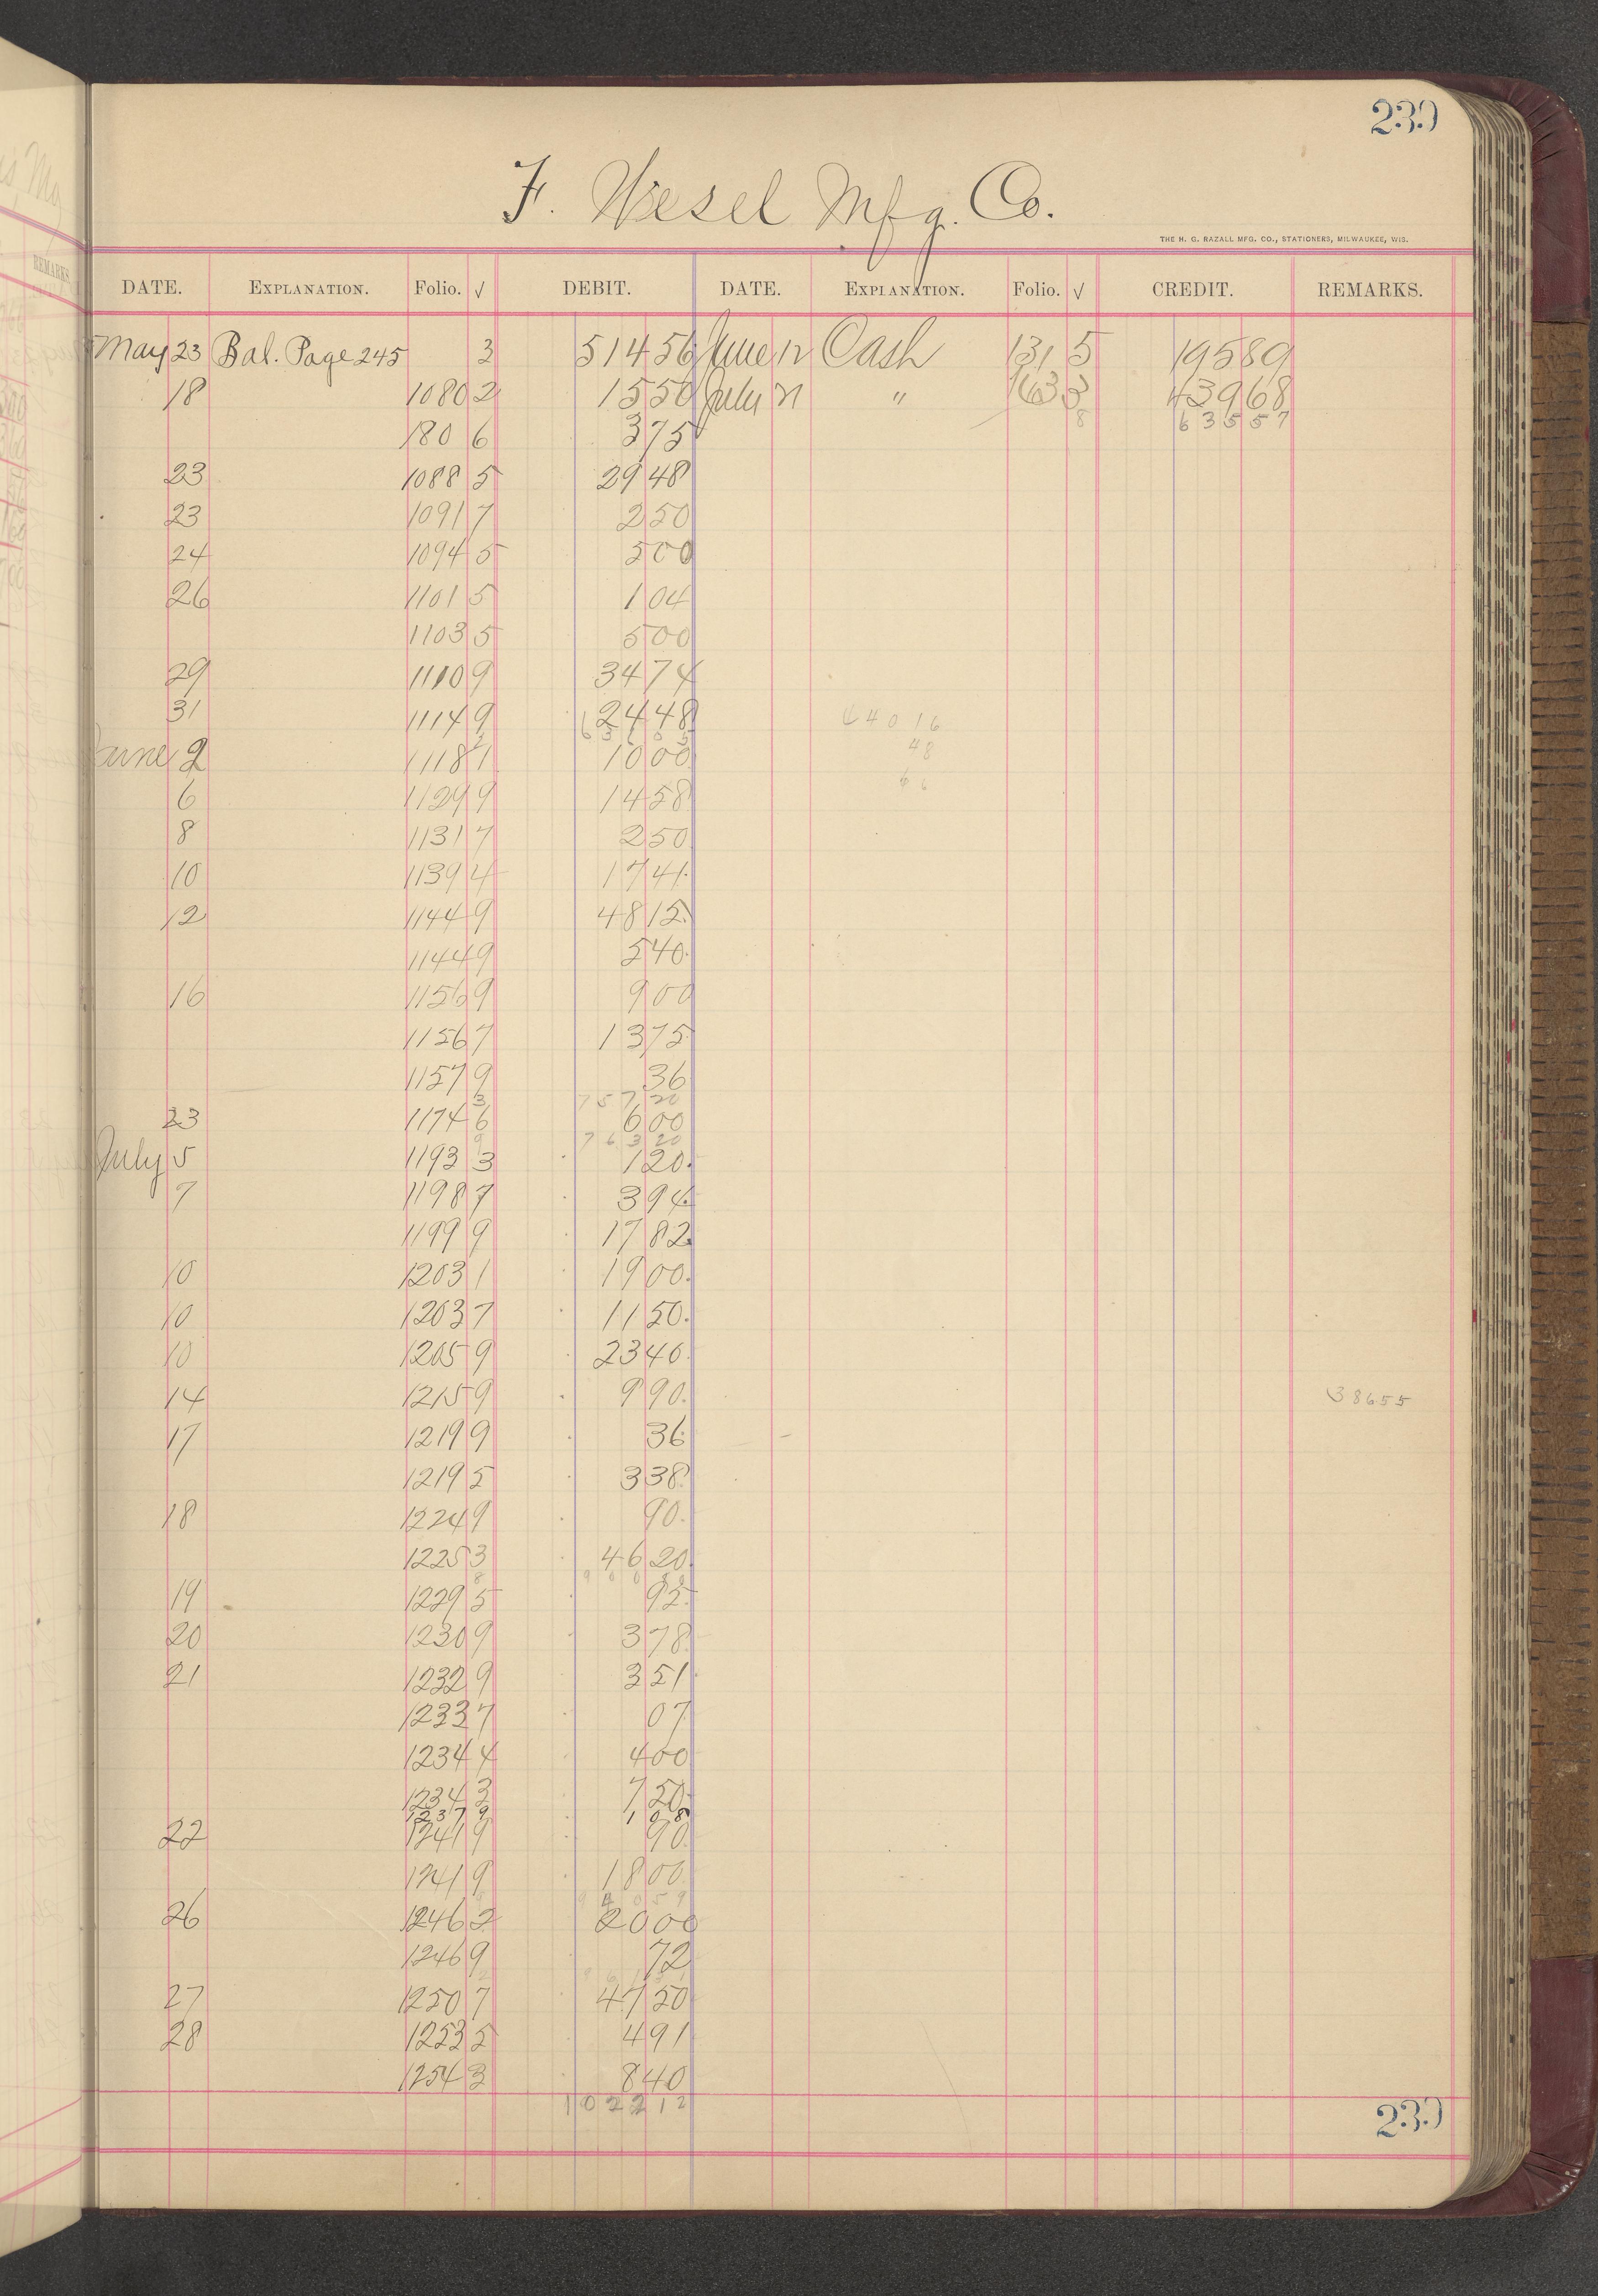 239
F. Wesel Mfg. Co.
THE H. G. RAZALL MFG. CO., STATIONERS, MILWAUKEE, WIS.
DATE. EXPLANATION. Folio. √ DEBIT. DATE. EXPLANATION. Folio. √ CREDIT. REMARKS.
May 23 Bal. Page 245 3 514 56 June 12 Cash 131 5 195 89
18 1080 2 15 50 July 21 " 163 3 439 68
8 635 57
180 6 3 75
23 1088 5 29 48
23 1091 7 2 50
24 1094 5 5 00
26 1101 5 1 04
1103 5 5 00
29 1110 9 34 74
31 1114 9 24 48 440 16
48
June 2 1118 1 10 00
6 1129 9 14 58
8 1131 7 2 50
10 1139 4 17 41
12 1144 9 48 15
1144 9 5 40
16 1156 9 9 00
1156 7 13 75
1157 9 36
3 757 20
23 1174 6 6 00
9 763 20
July 5 1193 3 1 20
7 1198 7 3 94
1199 9 17 82
10 1203 1 19 00
10 1203 7 11 50
10 1205 9 23 40
14 1215 9 9 90 386 55
17 1219 9 36
1219 5 3 38
18 1224 9 90
1225 3 46 20
19 1229 5 95
20 1230 9 3 78
21 1232 9 3 51
1233 7 07
1234 4 4 00
1234 3 7 50
1237 9 1 08
22 1241 9 90
1241 9 18 00
26 1246 2 20 00
1246 9 72
27 1250 7 47 50
28 1253 5 4 91
1254 3 8 40
1022 12
239